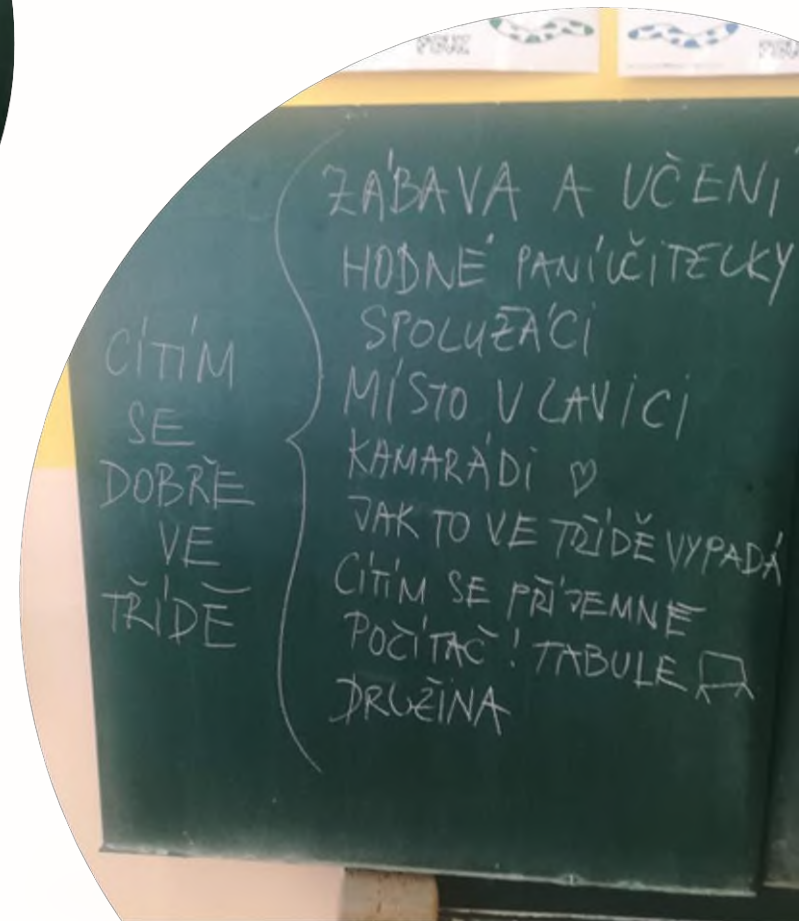 CÍTÍM
SE
DOBŘE
VE
TŘÍDĚ
ZÁBAVA A UČENÍ
HODNÉ PANÍ UČITELKY
SPOLUŽÁCI
MÍSTO V LAVICI
KAMARÁDI ♡
JAK TO VE TŘÍDĚ VYPADÁ
CÍTÍM SE PŘÍJEMNĚ
POČÍTAČ ! TABULE
DRUŽINA